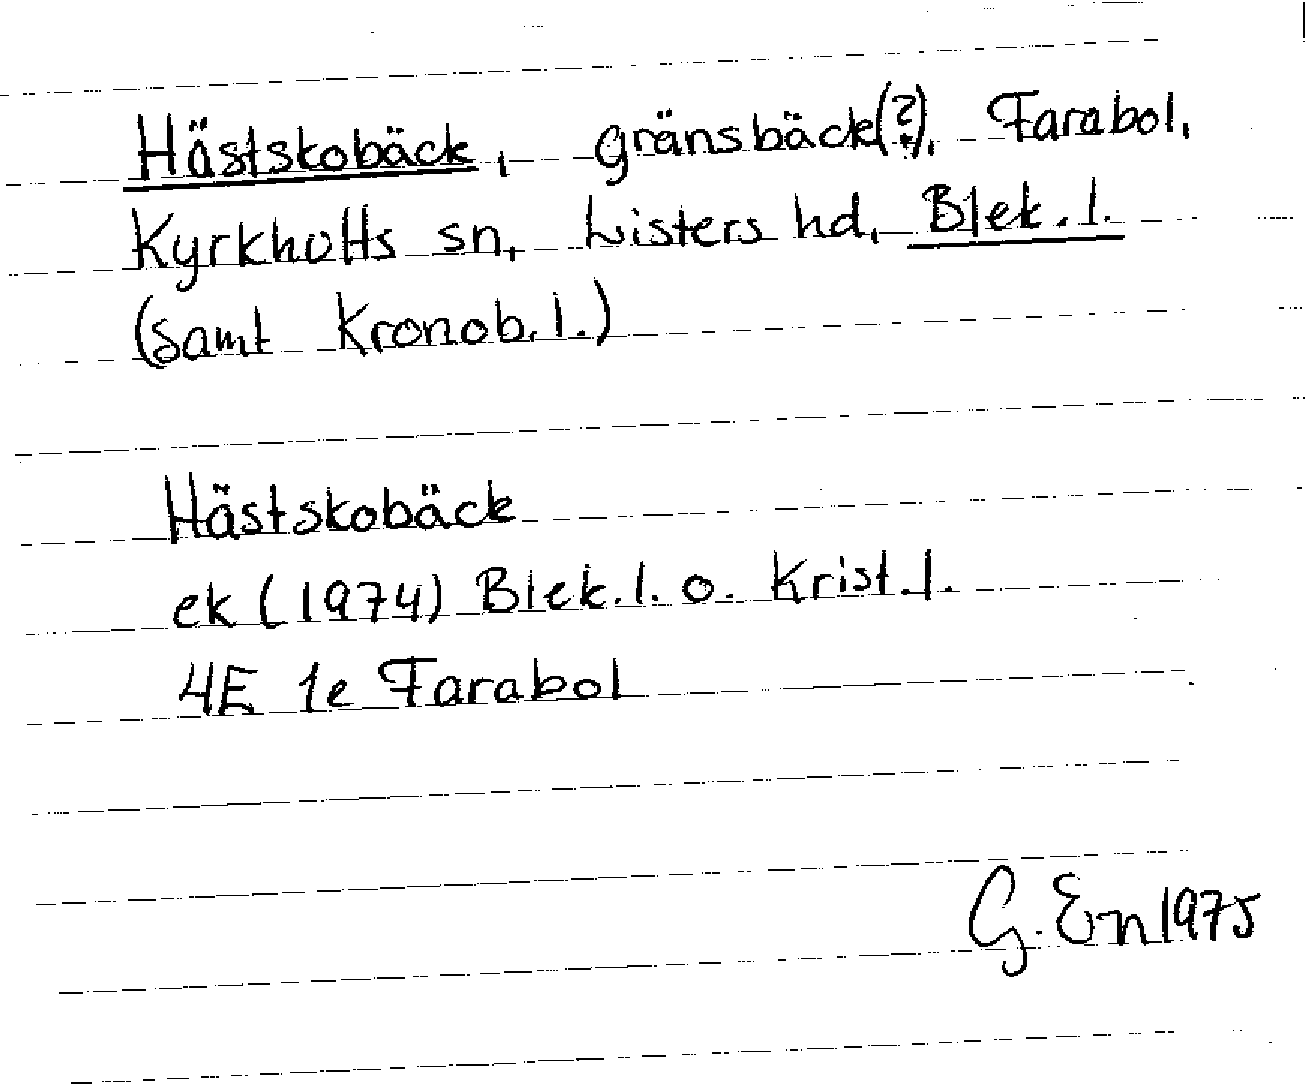 Hästskobäck, gränsbäck(?), Farabol,
Kyrkhults sn, Listers hd, Blek. l.
(samt Kronob. l.)
Hästskobäck
ek (1974) Blek. l. o. Krist. l.
4E 1e Farabol
G. En 1975